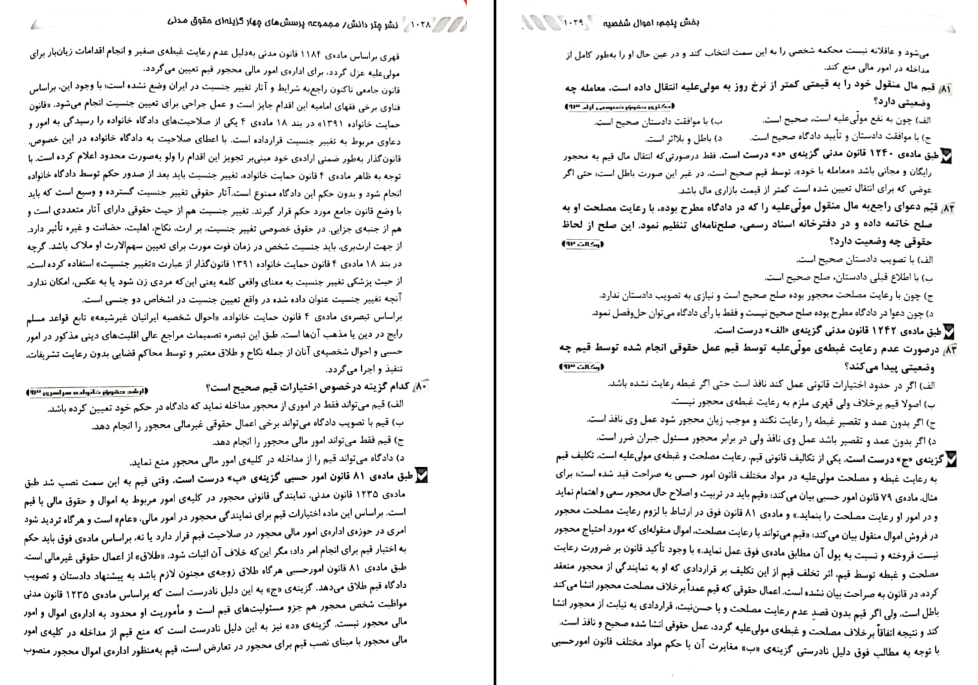 ۱۰۲۸ نشر چتر دانش/ مجموعه پرسش‌های چهار گزینه‌ای حقوق مدنی
قهری براساس ماده‌ی ۱۱۸۴ قانون مدنی به‌دلیل عدم رعایت غبطه‌ی صغیر و انجام اقدامات زیان‌بار برای
مولی‌علیه عزل گردد، برای اداره‌ی امور مالی محجور قیم تعیین می‌گردد.
قانون جامعی تاکنون راجع‌به شرایط و آثار تغییر جنسیت در ایران وضع نشده است؛ با وجود این، براساس
فتاوی برخی فقهای امامیه این اقدام جایز است و عمل جراحی برای تعیین جنسیت انجام می‌شود. «قانون
حمایت خانواده ۱۳۹۱» در بند ۱۸ ماده‌ی ۴ یکی از صلاحیت‌های دادگاه خانواده را رسیدگی به امور و
دعاوی مربوط به تغییر جنسیت قرارداده است. با اعطای صلاحیت به دادگاه خانواده در این خصوص،
قانون‌گذار به‌طور ضمنی اراده‌ی خود مبنی‌بر تجویز این اقدام را ولو به‌صورت محدود اعلام کرده است. با
توجه به ظاهر ماده‌ی ۴ قانون حمایت خانواده، تغییر جنسیت باید بعد از صدور حکم توسط دادگاه خانواده
انجام شود و بدون حکم این دادگاه ممنوع است. آثار حقوقی تغییر جنسیت گسترده و وسیع است که باید
با وضع قانون جامع مورد حکم قرار گیرند. تغییر جنسیت هم از حیث حقوقی دارای آثار متعددی است و
هم از جنبه‌ی جزایی. در حقوق خصوصی تغییر جنسیت، بر ارث، نکاح، اهلیت، حضانت و غیره تأثیر دارد.
از جهت ارث‌بری، باید جنسیت شخص در زمان فوت مورث برای تعیین سهم‌الارث او ملاک باشد. گرچه
در بند ۱۸ ماده‌ی ۴ قانون حمایت خانواده ۱۳۹۱ قانون‌گذار از عبارت «تغییر جنسیت» استفاده کرده است،
از حیث پزشکی تغییر جنسیت به معنای واقعی کلمه یعنی این‌که مردی زن شود یا به عکس، امکان ندارد.
آنچه تغییر جنسیت عنوان داده شده در واقع تعیین جنسیت در اشخاص دو جنسی است.
براساس تبصره‌ی ماده‌ی ۴ قانون حمایت خانواده، «احوال شخصیه ایرانیان غیرشیعه» تابع قواعد مسلم
رایج در دین یا مذهب آن‌ها است. طبق این تبصره تصمیمات مراجع عالی اقلیت‌های دینی مذکور در امور
حسبی و احوال شخصیه‌ی آنان از جمله نکاح و طلاق معتبر و توسط محاکم قضایی بدون رعایت تشریفات،
تنفیذ و اجرا می‌گردد.
۸۰ کدام گزینه درخصوص اختیارات قیم صحیح است؟ (ارشد حقوق خانواده سراسری ۹۳)
الف) قیم می‌تواند فقط در اموری از محجور مداخله نماید که دادگاه در حکم خود تعیین کرده باشد.
ب) قیم با تصویب دادگاه می‌تواند برخی اعمال حقوقی غیرمالی محجور را انجام دهد.
ج) قیم فقط می‌تواند امور مالی محجور را انجام دهد.
د) دادگاه می‌تواند قیم را از مداخله در کلیه‌ی امور مالی محجور منع نماید.
طبق ماده‌ی ۸۱ قانون امور حسبی گزینه‌ی «ب» درست است. وقتی قیم به این سمت نصب شد طبق
ماده‌ی ۱۲۳۵ قانون مدنی، نمایندگی قانونی محجور در کلیه‌ی امور مربوط به اموال و حقوق مالی با قیم
است. براساس این ماده اختیارات قیم برای نمایندگی محجور در امور مالی، «عام» است و هرگاه تردید شود
امری در حوزه‌ی اداره‌ی امور مالی محجور در صلاحیت قیم قرار دارد یا نه، براساس ماده‌ی فوق باید حکم
به اختیار قیم برای انجام امر داد؛ مگر این‌که خلاف آن اثبات شود. «طلاق» از اعمال حقوقی غیرمالی است.
طبق ماده‌ی ۸۱ قانون امورحسبی هرگاه طلاق زوجه‌ی مجنون لازم باشد به پیشنهاد دادستان و تصویب
دادگاه قیم طلاق می‌دهد. گزینه‌ی «ج» به این دلیل نادرست است که براساس ماده‌ی ۱۲۳۵ قانون مدنی
مواظبت شخص محجور هم جزو مسئولیت‌های قیم است و مأموریت او محدود به اداره‌ی اموال و امور
مالی محجور نیست. گزینه‌ی «د» نیز به این دلیل نادرست است که منع قیم از مداخله در کلیه‌ی امور
مالی محجور با مبنای نصب قیم برای محجور در تعارض است، قیم به‌منظور اداره‌ی اموال محجور منصوب
بخش پنجم: احوال شخصیه ۱۰۲۹
می‌شود و عاقلانه نیست محکمه شخصی را به این سمت انتخاب کند و در عین حال او را به‌طور کامل از
مداخله در امور مالی منع کند.
۸۱ قیم مال منقول خود را به قیمتی کمتر از نرخ روز به مولی‌علیه انتقال داده است. معامله چه
وضعیتی دارد؟ (دکتری حقوق خصوصی آزاد ۹۳)
الف) چون به نفع مولّی‌علیه است، صحیح است. ب) با موافقت دادستان صحیح است.
ج) با موافقت دادستان و تأیید دادگاه صحیح است. د) باطل و بلااثر است.
طبق ماده‌ی ۱۲۴۰ قانون مدنی گزینه‌ی «د» درست است. فقط درصورتی‌که انتقال مال قیم به محجور
رایگان و مجانی باشد «معامله با خود»، توسط قیم صحیح است. در غیر این صورت باطل است؛ حتی اگر
عوضی که برای انتقال تعیین شده است کمتر از قیمت بازاری مال باشد.
۸۲ قیّم دعوای راجع‌به مال منقول مولّی‌علیه را که در دادگاه مطرح بوده، با رعایت مصلحت او به
صلح خاتمه داده و در دفترخانه اسناد رسمی، صلح‌نامه‌ای تنظیم نمود. این صلح از لحاظ
حقوقی چه وضعیت دارد؟ (وکالت ۹۳)
الف) با تصویب دادستان صحیح است.
ب) با اطلاع قبلی دادستان، صلح صحیح است.
ج) چون با رعایت مصلحت محجور بوده صلح صحیح است و نیازی به تصویب دادستان ندارد.
د) چون دعوا در دادگاه مطرح بوده صلح صحیح نیست و فقط با رأی دادگاه می‌توان حل‌وفصل نمود.
طبق ماده‌ی ۱۲۴۲ قانون مدنی گزینه‌ی «الف» درست است.
۸۳ درصورت عدم رعایت غبطه‌ی مولّی‌علیه توسط قیم عمل حقوقی انجام شده توسط قیم چه
وضعیتی پیدا می‌کند؟ (وکالت ۹۳)
الف) اگر در حدود اختیارات قانونی عمل کند نافذ است حتی اگر غبطه رعایت نشده باشد.
ب) اصولا قیم برخلاف ولی قهری ملزم به رعایت غبطه‌ی محجور نیست.
ج) اگر بدون عمد و تقصیر غبطه را رعایت نکند و موجب زیان محجور شود عمل وی نافذ است.
د) اگر بدون عمد و تقصیر باشد عمل وی نافذ ولی در برابر محجور مسئول جبران ضرر است.
گزینه‌ی «ج» درست است. یکی از تکالیف قانونی قیم، رعایت مصلحت و غبطه‌ی مولی‌علیه است. تکلیف قیم
به رعایت غبطه و مصلحت مولی‌علیه در مواد مختلف قانون امور حسبی به صراحت قید شده است؛ برای
مثال، ماده‌ی ۷۹ قانون امور حسبی بیان می‌کند: «قیم باید در تربیت و اصلاح حال محجور سعی و اهتمام نماید
و در امور او رعایت مصلحت را بنماید.» و ماده‌ی ۸۱ قانون فوق در ارتباط با لزوم رعایت مصلحت محجور
در فروش اموال منقول بیان می‌کند: «قیم می‌تواند با رعایت مصلحت، اموال منقوله‌ای که مورد احتیاج محجور
نیست فروخته و نسبت به پول آن مطابق ماده‌ی فوق عمل نماید.» با وجود تأکید قانون بر ضرورت رعایت
مصلحت و غبطه توسط قیم، اثر تخلف قیم از این تکلیف بر قراردادی که او به نمایندگی از محجور منعقد
کرده، در قانون به صراحت بیان نشده است. اعمال حقوقی که قیم عمداً برخلاف مصلحت محجور انشا می‌کند
باطل است. ولی اگر قیم بدون قصد عدم رعایت مصلحت و با حسن‌نیت، قراردادی به نیابت از محجور انشا
کند و نتیجه اتفاقاً برخلاف مصلحت و غبطه‌ی مولی‌علیه گردد، عمل حقوقی انشا شده صحیح و نافذ است.
با توجه به مطالب فوق دلیل نادرستی گزینه‌ی «ب» مغایرت آن با حکم مواد مختلف قانون امورحسبی